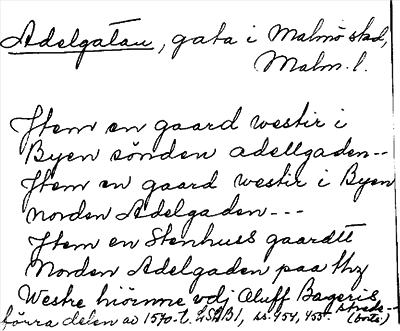 Adelgatan, gata i Malmö stad,
Malm. l.
Jtem en gaard westir i
Byen sönden adellgaden--
Jtem en gaard westir i Byen
norden Adelgaden---
Jtem en Stenhuss gaardtt
Norden Adelgaden paa thz
Westre hiörnne vdj Oluff Bageris
strede--
förra delen av 1570-t. LSÄB1, s. 454, 455.